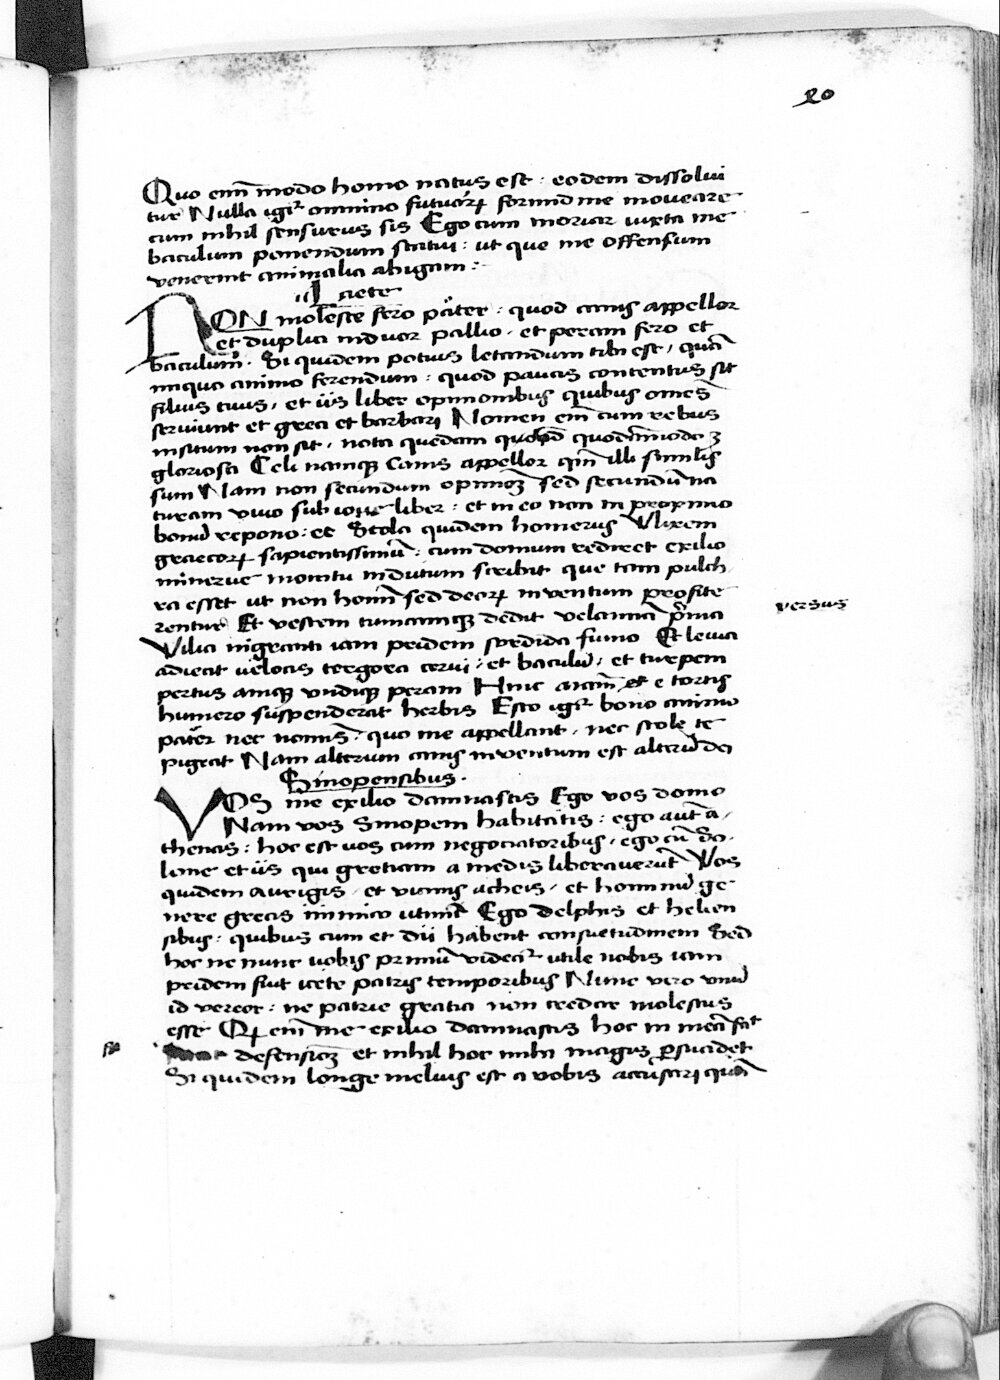 20
Quo enī modo homo natus est : eodem dissolui
tur Nulla igr̄ omnino futuoꝝ formido me moueare
cum nihil sensurus sis Ego cum moriar iuxta me
baculum ponendum statui : ut que me offensum
venerint animalia abigam :
Icete
NON moleste fero pater : quod canis appellor
et duplici induor pallio . et peram fero et
baculum . Si quidem potius letandum tibi est , quā
iniquo animo ferendum : quod paucis contentus sit
filius tuus , et iis liber opinionibus quibus omēs
seruiunt et greci et barbari Nomen enī cum rebus
insitum non sit , nota quedam quodā modo ē
gloriosa Celi namqꝫ Canis appellor qm̄ illi similis
sum Nam non secundum opinioꝫ sed secundū na
turam viuo sub ioue liber : et in eo non in proximo
bonū repono : et Stola quidem homerus Vlixem
graecoꝝ sapientissimū : cum domum rediret exilio
minerue monitu indutum scribit que tam pulch
ra esset ut non hoīm sed deoꝝ inventum profite
rentur Et vestem tunicamqꝫ dedit velamina prima
versus
Vilia nigranti iam pridem sordida fumo Et leuia
adiecit uelocis tergora cerui : et baculū : et turpem
pertus amqꝫ vndiqꝫ peram Hinc atam et e tortis
humero suspenderat herbis Esto igr̄ bono animo
pater nec nomīs . quo me appellant . nec stole te
pigeat Nam alterum canis inventum est alterū dei
Sinopensibus .
VOS me exilio damnastis Ego vos domo
Nam vos Sinopem habitatis : ego aut̄ a ,
thenas : hoc est uos cum negociatoribus , ego cū So .
lone et iis qui gretiam a medis liberauerūt Vos
quidem aurigis , et viannis acheis , et hominū ge
nere grecis inimico utiminī Ego delphis et helien
sibus : quibus cum et dii habent consuetudinem Sed
hoc ne nunc uobis primū videtr̄ utile nobis iam
pridem fuit icete patris temporibus Nunc vero vnū
id vereor : ne patrie gratia non credar molestus
esse Qꝝ enī me exilio damnastis hoc in mea fit
defensioꝫ et nihil hoc mihi magis ꝑsuadet
Si quidem longe melius est a vobis accusari quā